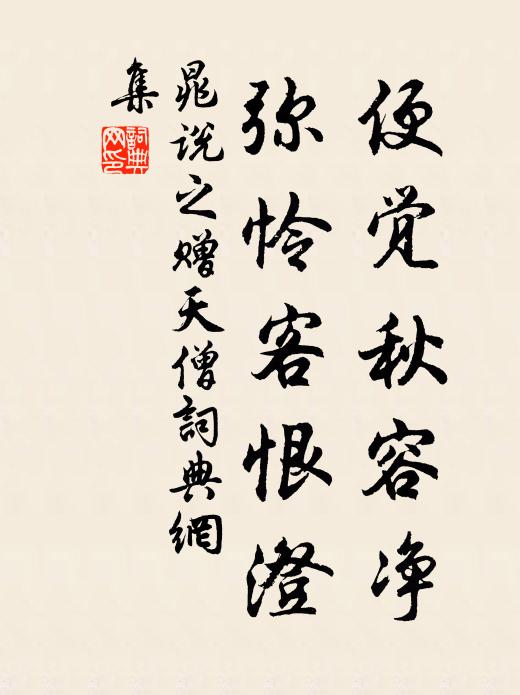 便觉秋容净
弥怜客恨澄
晁说之赠天僧詞典網
集
詞典
网印